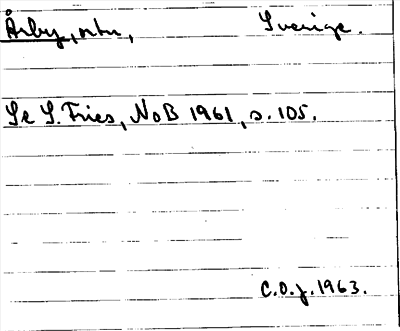 Årby, ortn, Sverige.
Se S. Fries, NoB 1961, s. 105.
C.O.j. 1963.